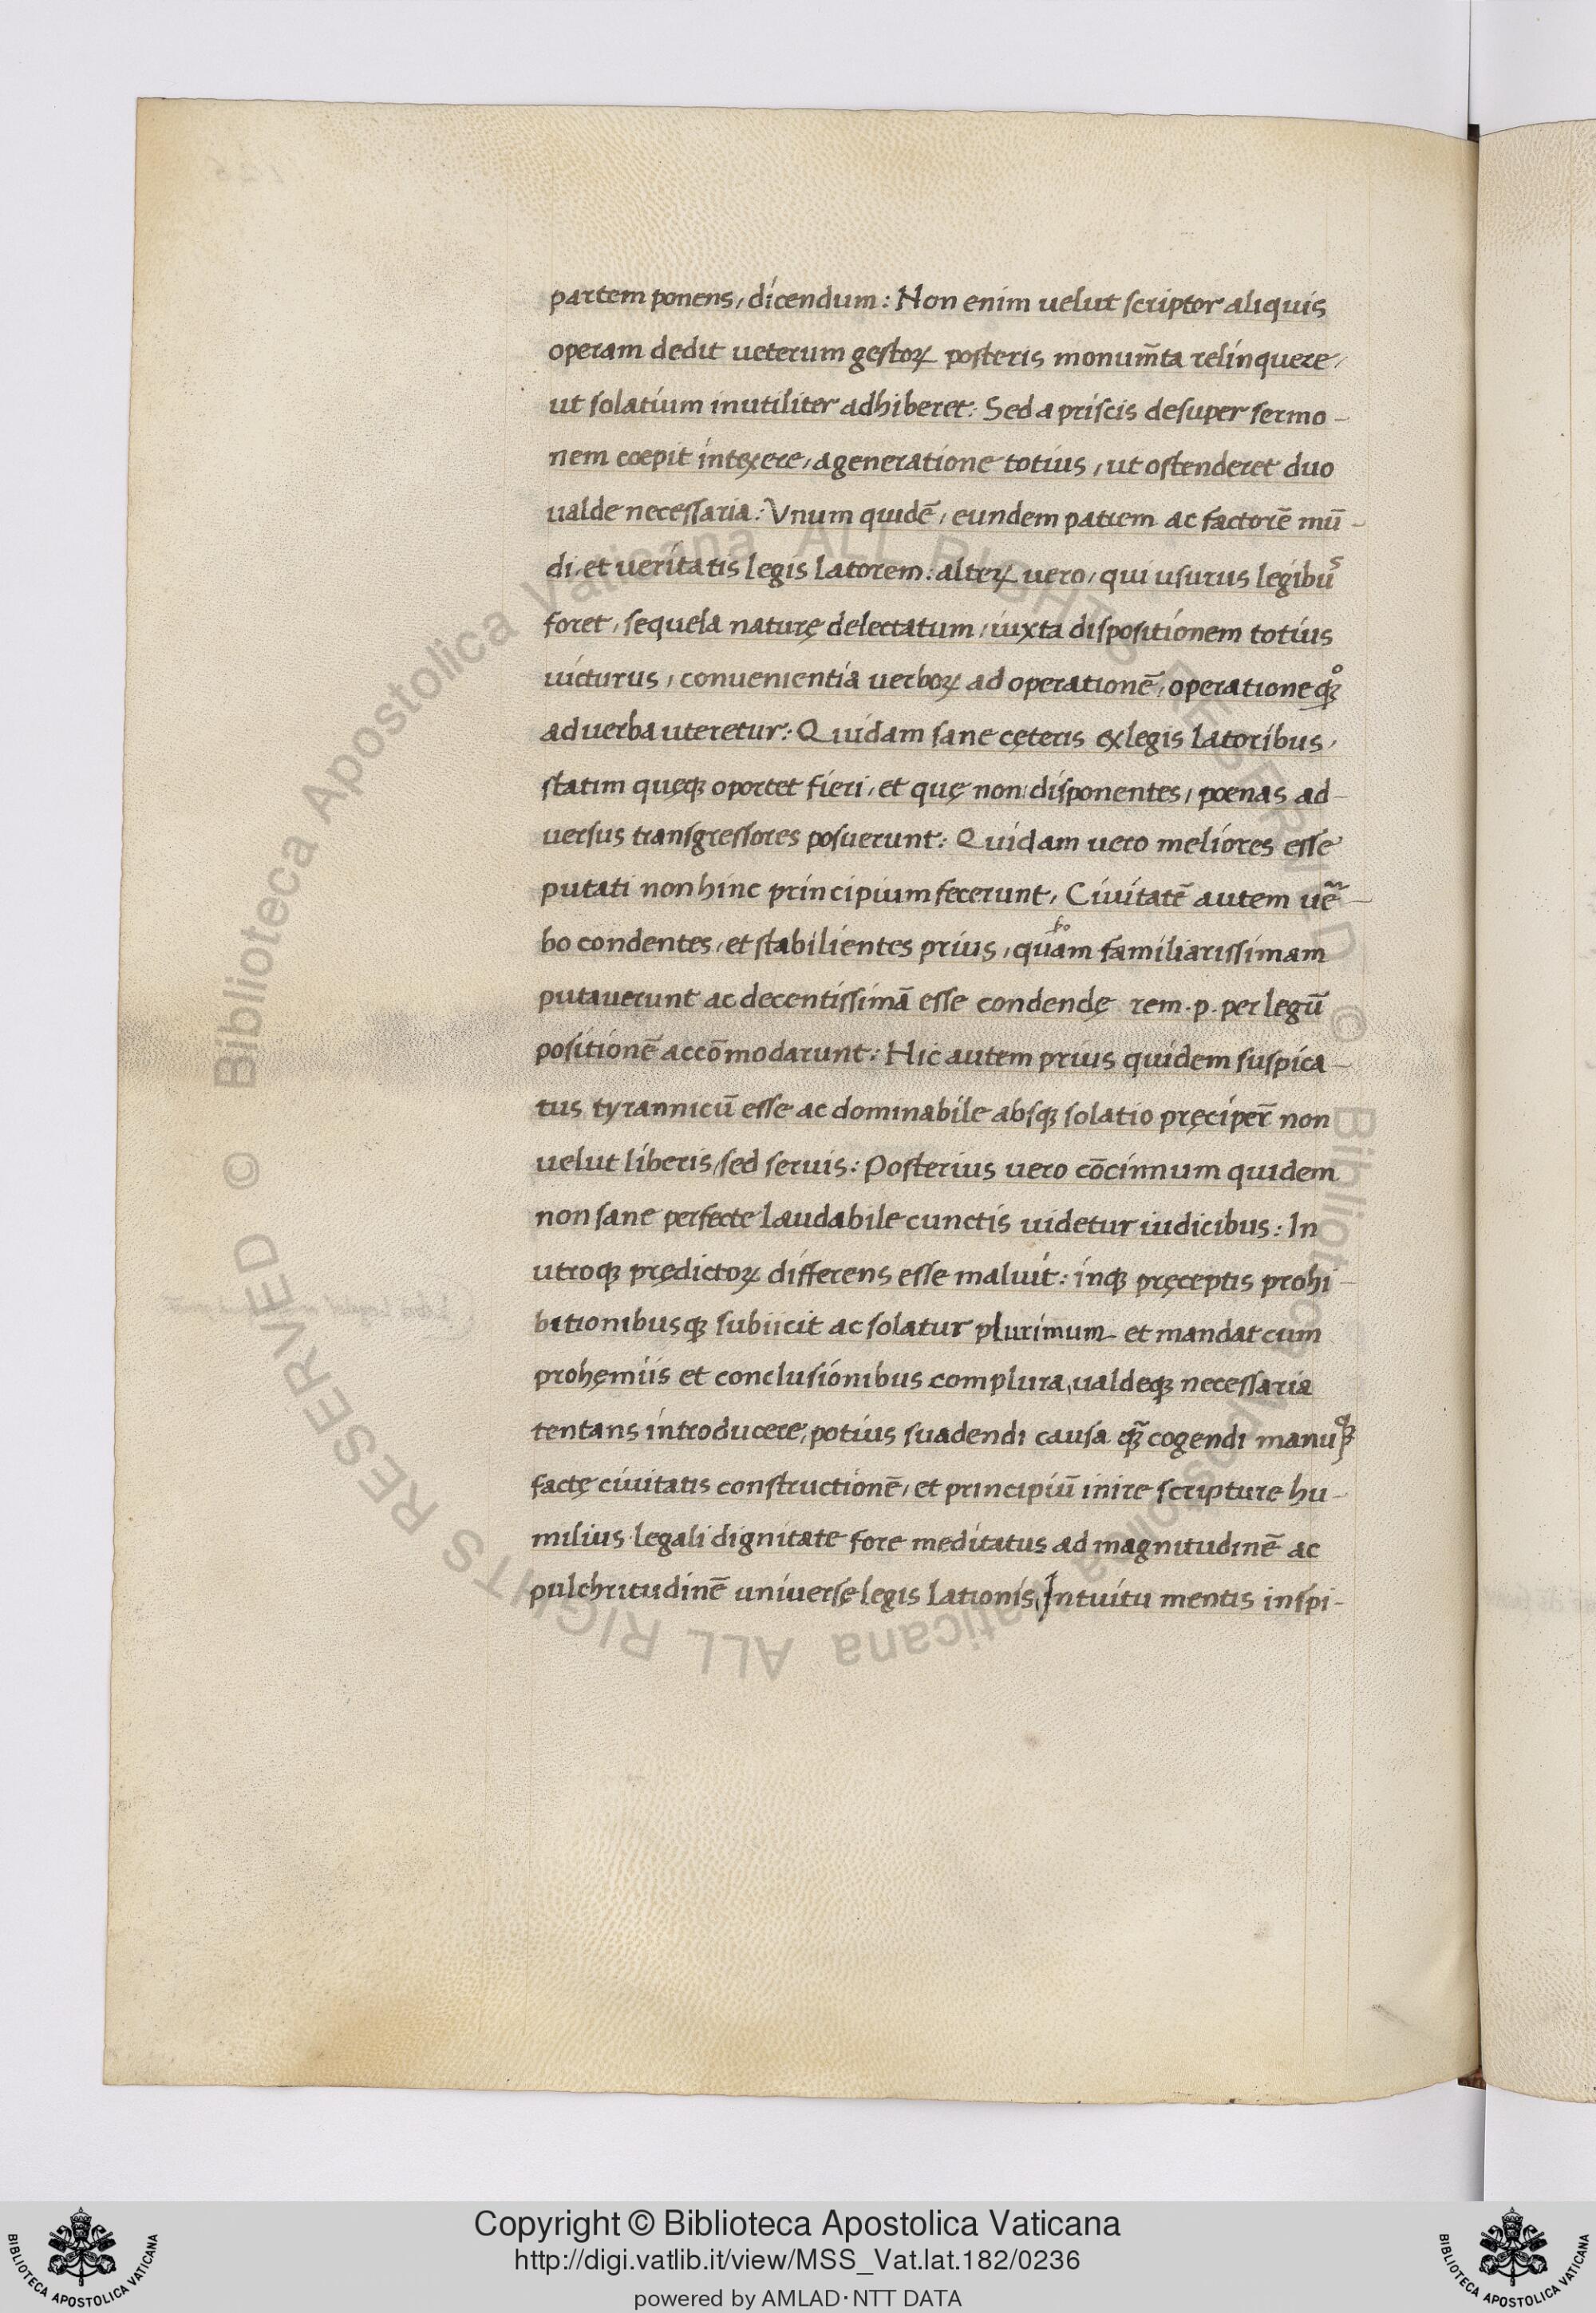 partem ponens, dicendum: Non enim uelut scriptor aliquis
operam dedit ueterum gestoꝝ posteris monum̅ta relinquere,
ut solatium inutiliter adhiberet: Sed a priscis desuper sermo-
nem coepit intexere, a generatione totius, ut ostenderet duo
ualde necessaria: Vnum quidē, eundem patrem ac factorē mū-
di, et ueritatis legis latorem: alterꝝ uero, qui usurus legibus
foret, sequela naturę delectatum, iuxta dispositionem totius
uicturus, conuenientia uerboꝝ ad operationē, operatione
ad uerba uteretur: Quidam sane cęteris ex legis latoribus,
statim quęqꝫ oportet fieri, et quę non disponentes, poenas ad-
uersus transgressores posuerunt: Quidam uero meliores esse
putati non hinc principium fecerunt, Ciuitatē autem uē-
bo condentes, et stabilientes prius, quam familiarissimam
putauerunt ac decentissimā esse condendę rem.p. per legū
positionē accōmodarunt: Hic autem prius quidem suspica-
tus tyrannicū esse ac dominabile absqꝫ solatio pręciper̅ non
uelut liberis, sed seruis: Posterius uero cōcinnum quidem
non sane perfecte laudabile cunctis uidetur iudicibus: In
utroqꝫ prędictoꝝ differens esse maluit: inqꝫ pręceptis prohi-
bitionibusqꝫ subiicit ac solatur plurimum et mandat cum
prohęmiis et conclusionibus complura, ualdeqꝫ necessaria
tentans introducere, potius suadendi causa qꝫ̅ cogendi manuqꝫ
factę ciuitatis constructionē, et principiū inire scripture hu-
milius legali dignitate fore meditatus ad magnitudinē ac
pulchritudinē uniuersę legis lationis, Intuitu mentis inspi-
Copyright © Biblioteca Apostolica Vaticana
http://digi.vatlib.it/view/MSS_Vat.lat.182/0236
powered by AMLAD·NTT DATA
BIBLIOTECA APOSTOLICA VATICANA
BIBLIOTECA APOSTOLICA VATICANA
© Biblioteca Apostolica Vaticana ALL RIGHTS RESERVED
© Biblioteca Apostolica Vaticana ALL RIGHTS RESERVED